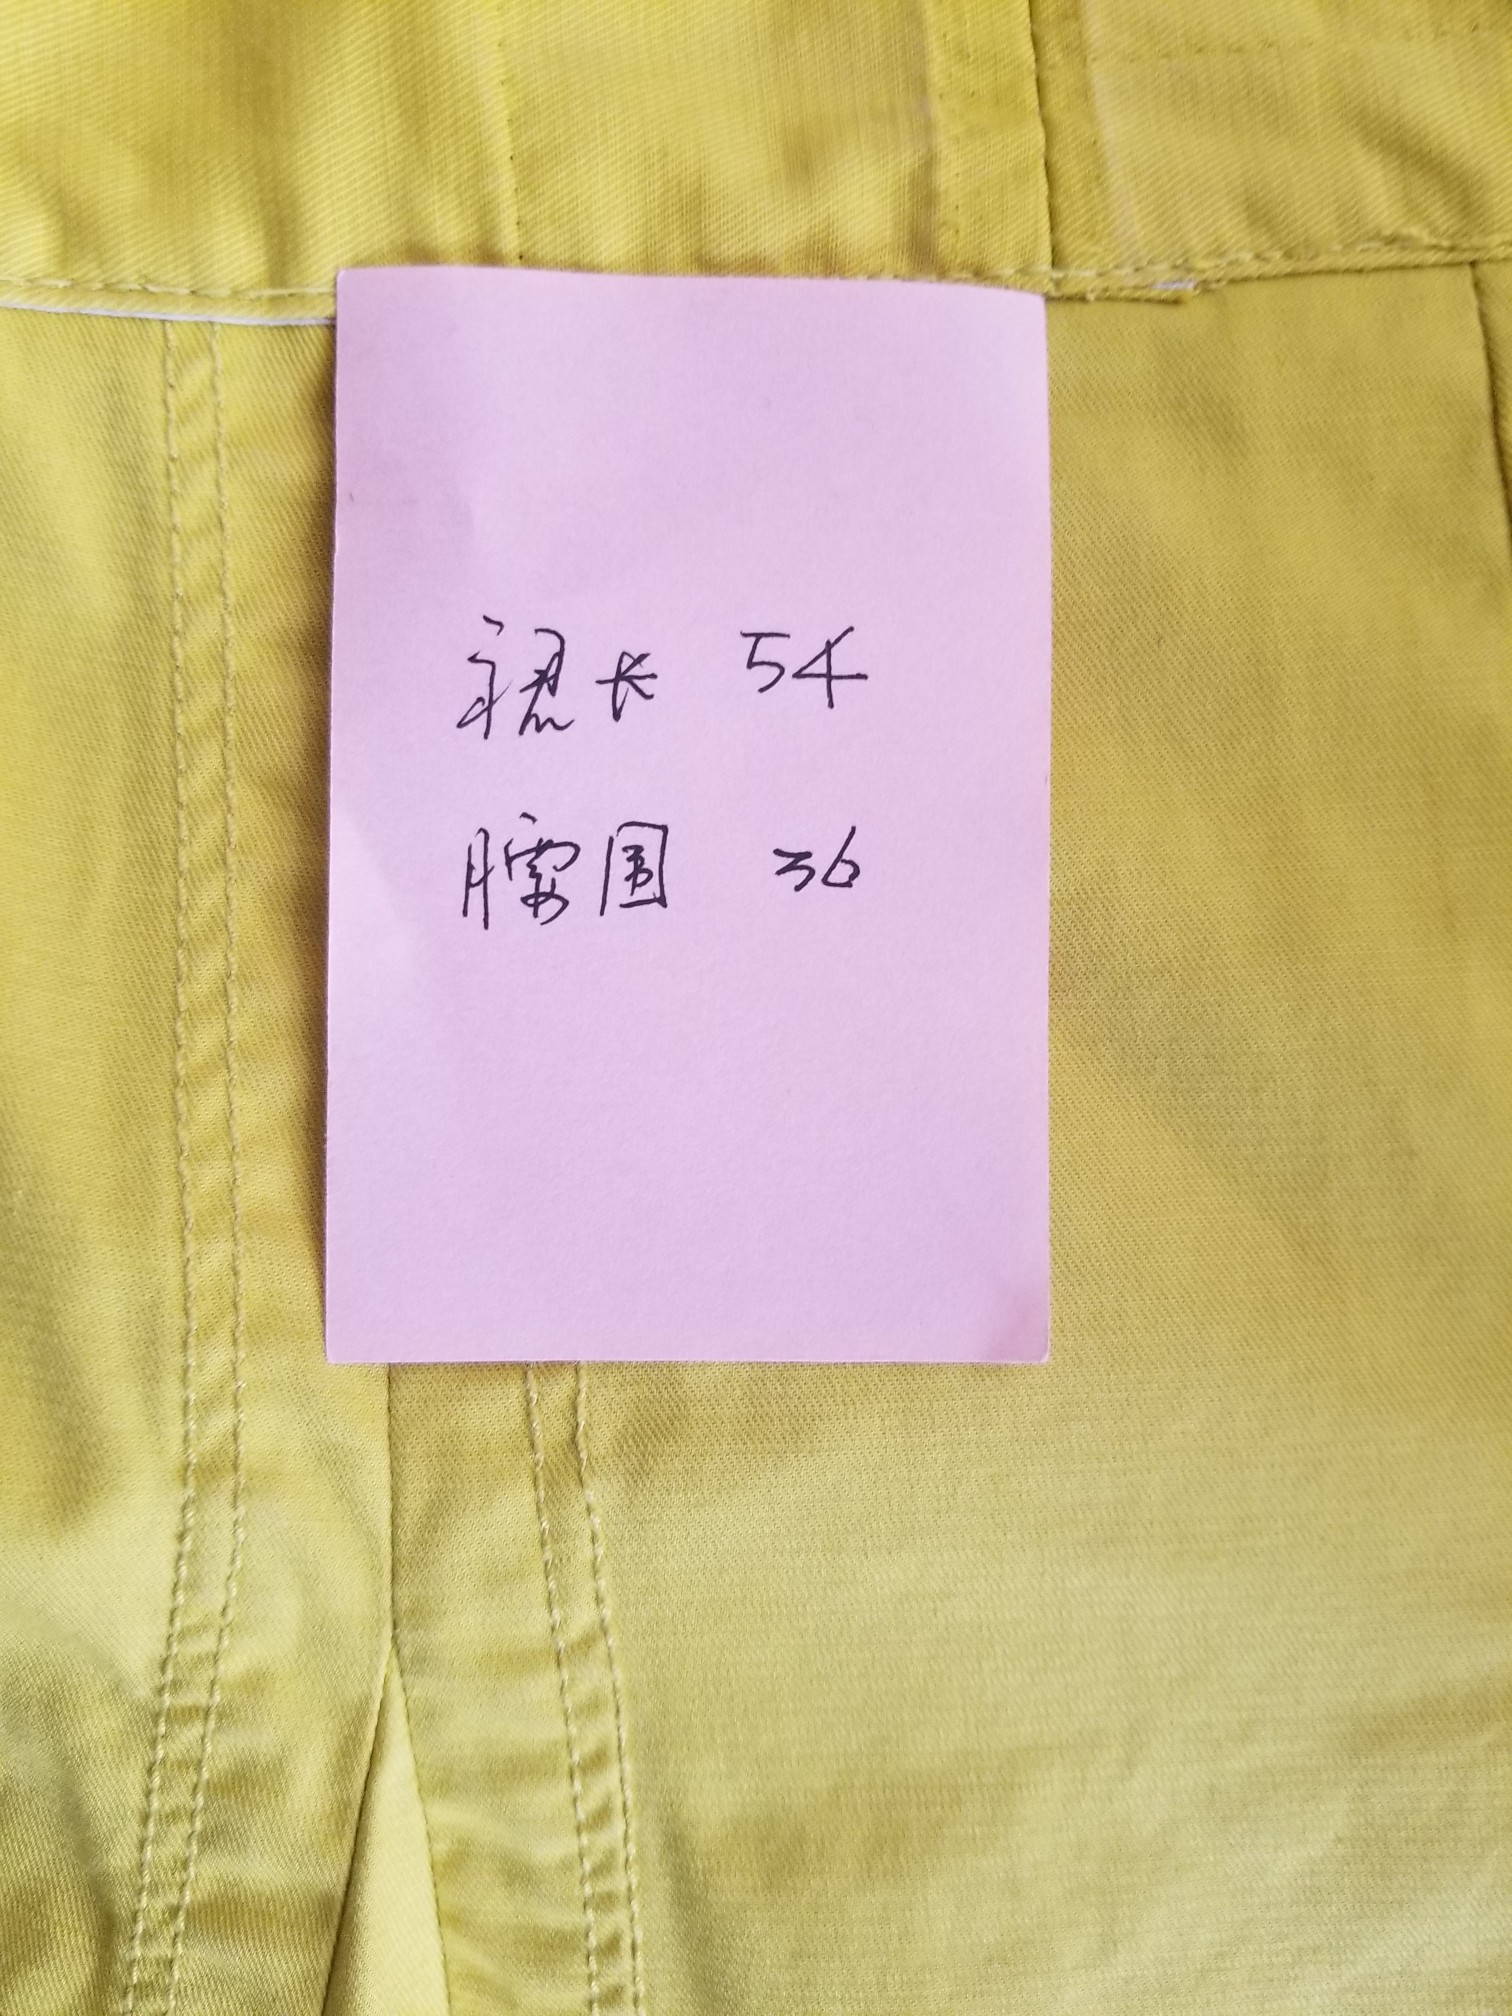 裙长 54
腰围 36